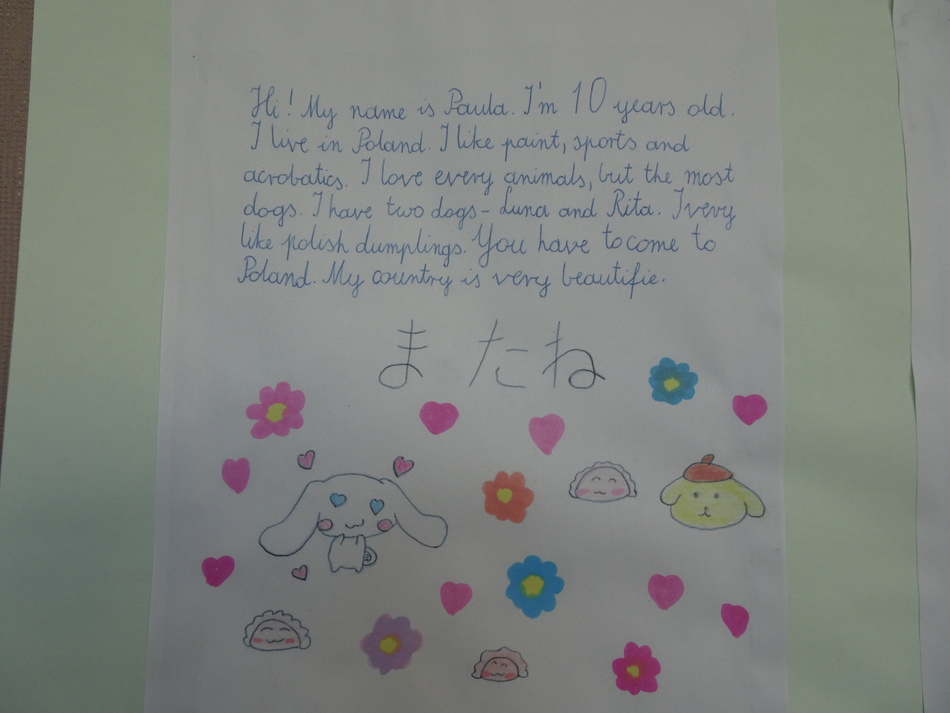 Hi! My name is Paula. I'm 10 years old.
I live in Poland. I like paint, sports and
acrobatics. I love every animals, but the most
dogs. I have two dogs - Luna and Rita. I very
like polish dumplings. You have to come to
Poland. My country is very beautifie.
またね